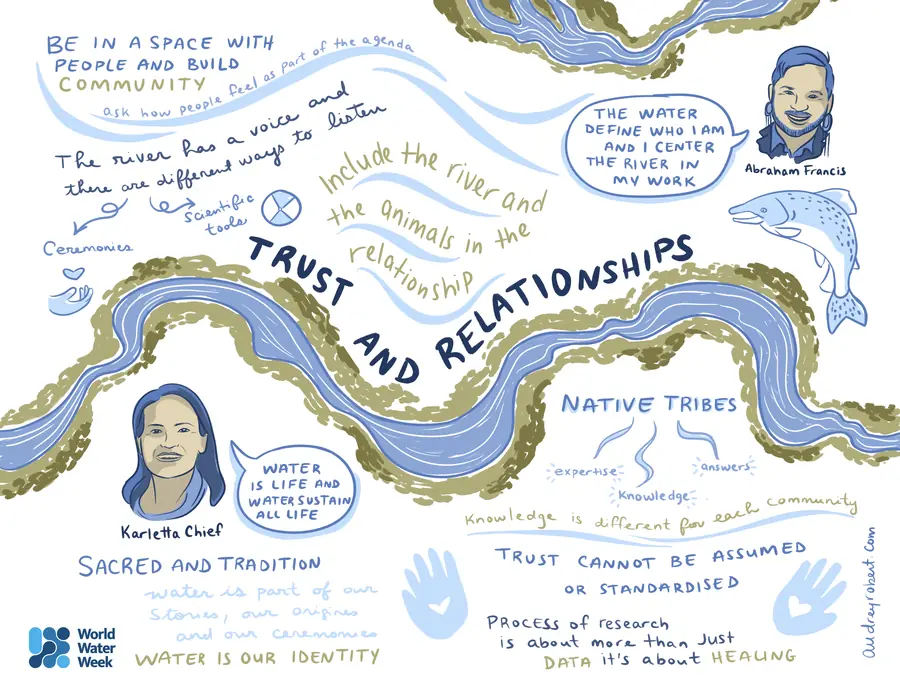 BE IN A SPACE WITH
PEOPLE AND BUILD
COMMUNITY
ask how people feel as part of the agenda
The river has a voice and
there are different ways to listen
Ceremonies
Scientific
tools
Include the river and
the animals in the
relationship
THE WATER
DEFINE WHO I AM
AND I CENTER
THE RIVER IN
MY WORK
Abraham Francis
TRUST
AND RELATIONSHIPS
Karletta Chief
WATER
IS LIFE AND
WATER SUSTAIN
ALL LIFE
NATIVE TRIBES
expertise
Knowledge
answers
Knowledge is different for each community
SACRED AND TRADITION
water is part of our
Stories, our origines
and our ceremonies
WATER IS OUR IDENTITY
TRUST CANNOT BE ASSUMED
OR STANDARDISED
PROCESS of research
is about more than Just
DATA it's about HEALING
World
Water
Week
audreyrobert.com